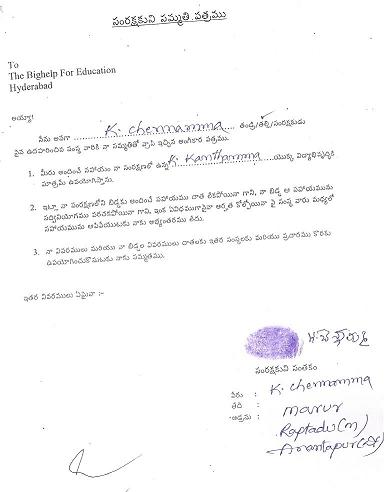 సంరక్షకుని సమ్మతి పత్రము
To
The Bighelp For Education
Hyderabad
అయ్యా!
నేను అనగా K. Chennamma తండ్రి/తల్లి/సంరక్షకుడు
పైన ఉదహరించిన సంస్థ వారికి నా సమ్మతితో వ్రాసి ఇచ్చిన అంగీకార పత్రము.
1. మీరు అందించే సహాయం నా సంరక్షణలో ఉన్న K. Kanthamma యొక్క విద్యాభివృద్ధికి
మాత్రమే ఉపయోగిస్తాను.
2. ఇట్లా నా సంరక్షణలోని బిడ్డకు అందించే సహాయము దాత లేకపోయినా గాని, నా బిడ్డ ఆ సహాయమును
సద్వినియోగము పరచకపోయినా గాని, ఇంక ఏవిధముగానైనా అర్హత కోల్పోయినా పై సంస్థ వారు మధ్యలో
సహాయమును ఆపివేయుటకు నాకు అభ్యంతరము లేదు.
3. నా వివరములు మరియు నా బిడ్డల వివరములు దాతలకు ఇతర సంస్థలకు మరియు ప్రచారము కొరకు
ఉపయోగించుకొనుటకు నాకు సమ్మతము.
ఇతర వివరములు ఏమైనా :-
సంరక్షకుని సంతకం
పేరు : K. Chennamma
తేది :
అడ్రసు : Marur
Raptadu (M)
Anantapur (Dt)